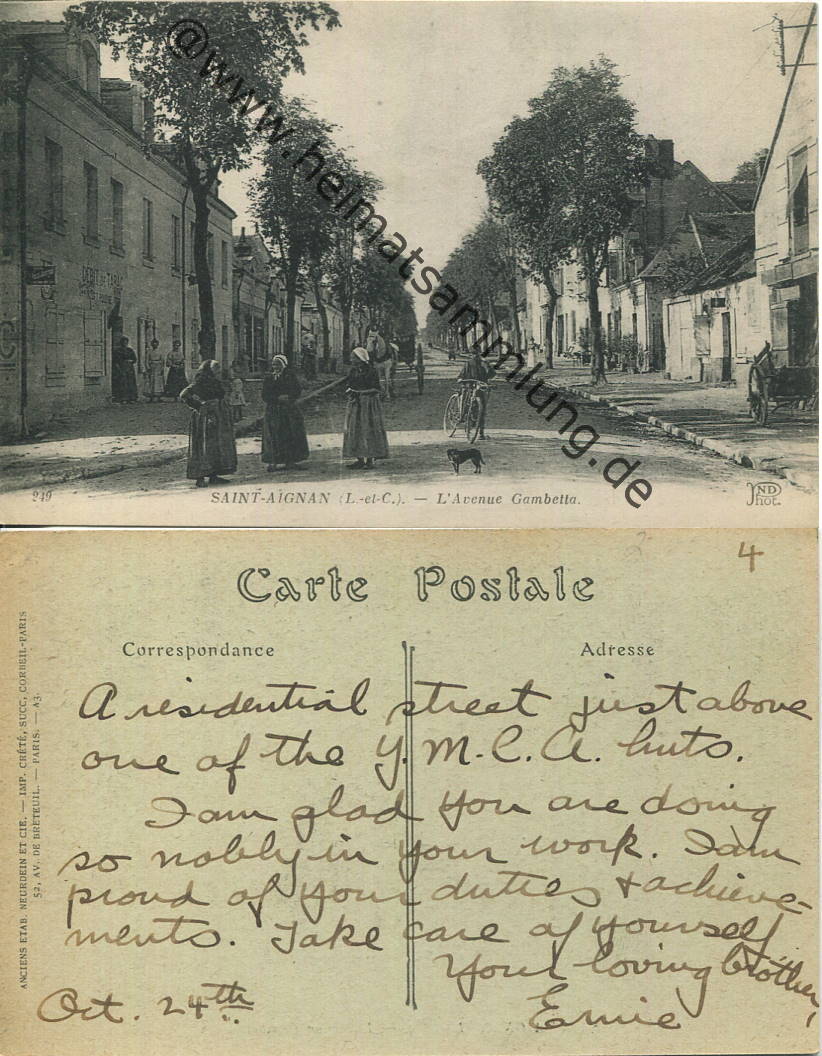 @www.heimatsammlung.de
DEBIT DE TABAC
249
SAINT-AIGNAN (L.-et-C.). — L'Avenue Gambetta.
ND
Phot.
4
Carte Postale
Correspondance
Adresse
ANCIENS ETAB. NEURDEIN ET CIE. — IMP. CRÉTÉ, SUCC, CORBEIL-PARIS
52, AV. DE BRETEUIL. — PARIS. — A3.
A residential street just above
one of the Y.M.C.A. huts.
I am glad you are doing
so nobly in your work. I am
proud of your duties & achieve-
ments. Take care of yourself
Your loving brother,
Oct. 24th
Ernie